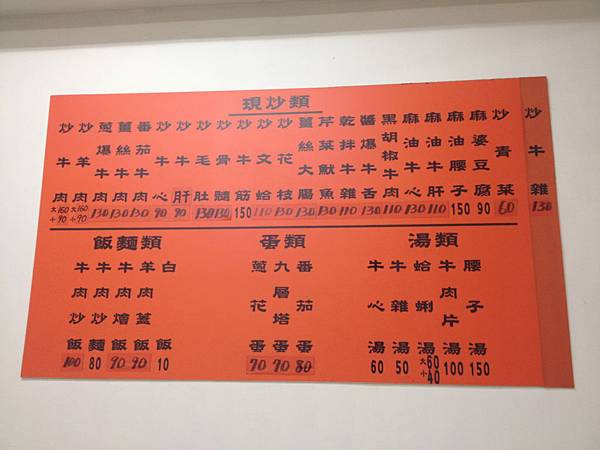 現炒類
炒牛肉 大160 小90
炒羊肉 大160 小90
蔥爆牛肉 130
薑絲牛肉 130
番茄牛肉 130
炒牛心 90
炒牛肝 90
炒毛肚 130
炒骨髓 130
炒牛筋 150
炒文蛤 110
炒花枝 130
薑絲大腸 130
芹菜魷魚 130
乾拌牛雜 110
醬爆牛舌 130
黑胡椒牛肉 110
麻油牛心 130
麻油牛肝 110
麻油腰子 150
麻婆豆腐 90
炒青菜 60
炒牛雜 130
飯麵類
牛肉炒飯 100
牛肉炒麵 80
牛肉燴飯 90
羊肉蓋飯 90
白飯 10
蛋類
蔥花蛋 70
九層塔蛋 70
番茄蛋 80
湯類
牛心湯 60
牛雜湯 50
蛤蜊湯 大60 小40
牛肉片湯 100
腰子湯 150